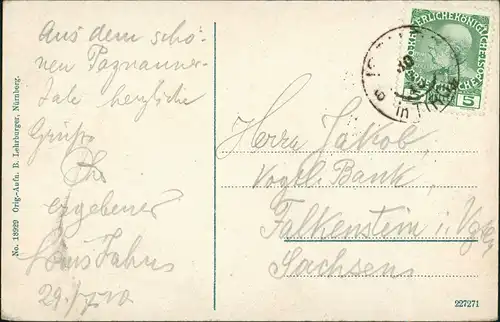 Aus dem schö-
nen Paznauner-
tale herzliche
Grüße
Ihr
ergebener
Louis Jahns
29./VII.10
No. 18929 Orig.-Aufn. B. Lehrburger, Nürnberg.
KAISERLICHEKÖNIGLICHEÖSTERR
5
Herrn Jakob,
Vogtl. Bank,
Falkenstein i. Vgtl.
Sachsen
227271